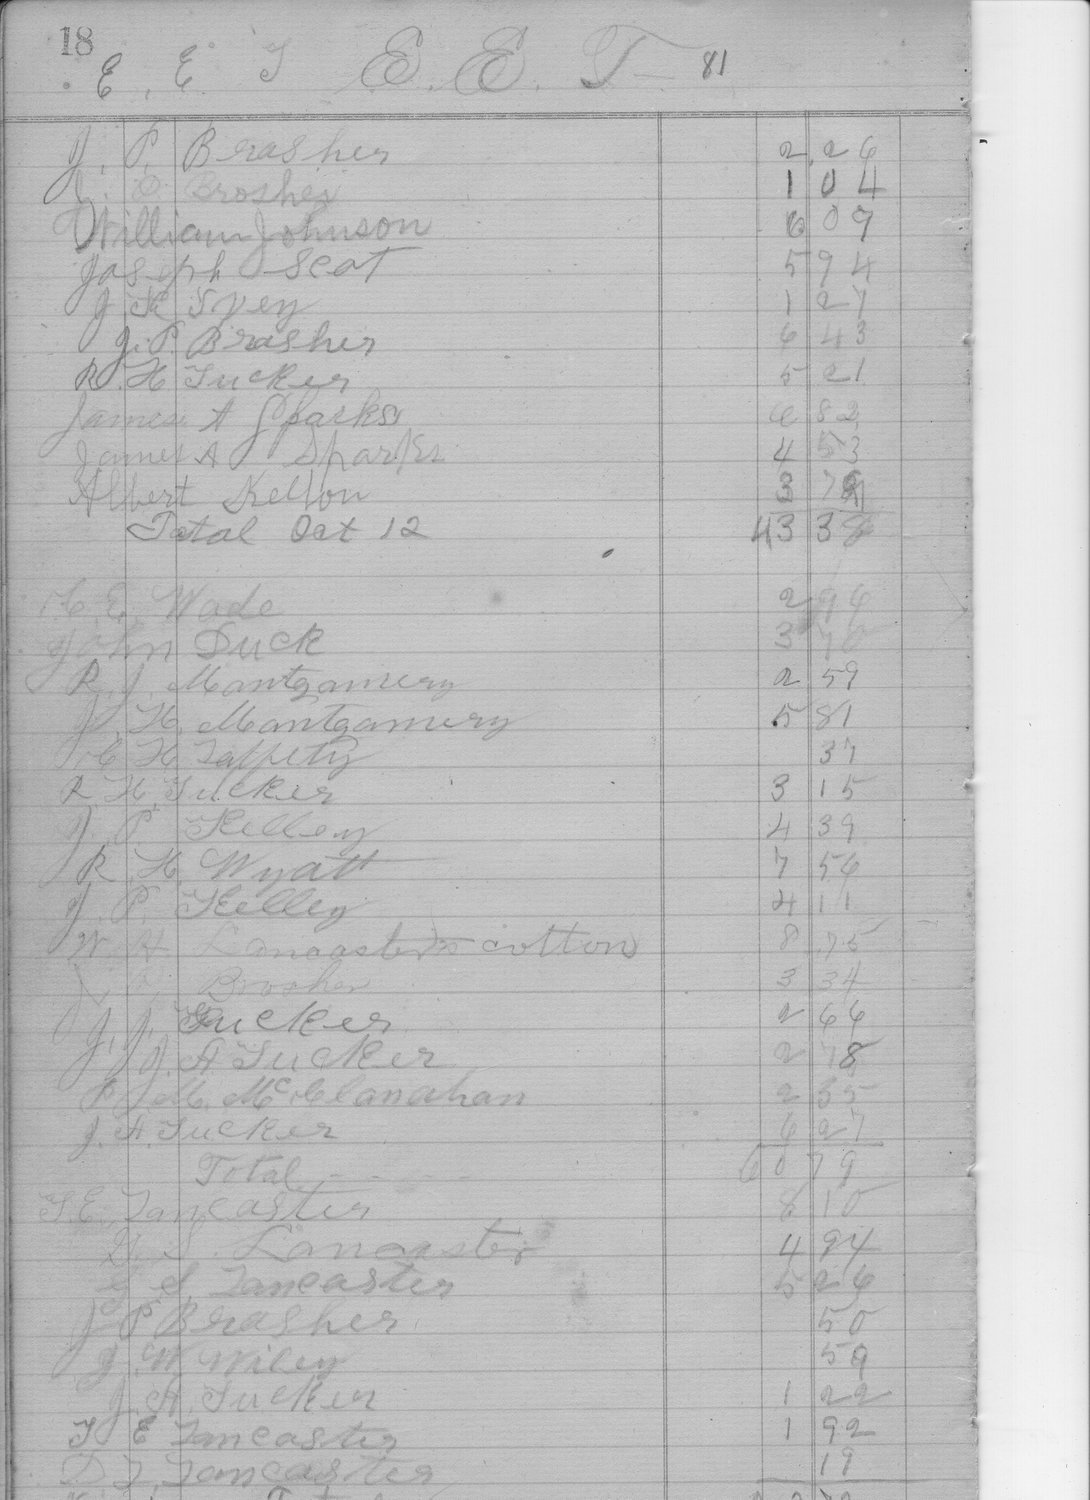 18
E. E. T E. E. T - 81
J. P. Brasher 2 26
J. P. Brasher 1 04
William Johnson 6 07
Joseph Scot 5 94
J K Ivey 1 27
J. P. Brasher 6 43
R. H. Tucker 5 21
James A Sparks 6 82
James A Sparks 4 53
Albert Kelton 3 7
Total Oct 12 43 38
C. E. Wade 2 96
John Duck 3 70
R. J. Mantgamery 2 59
J. H. Mantgamery 5 81
C. H. 37
R H. Tucker 3 15
J. P. Kelley 4 39
R. H. Wyatt 7 56
J. P. Kelley 4 11
W. A. Lancaster cotton 8 75
J. P. Brasher 3 34
J. J. Tucker 2 66
J. A Tucker 2 78
P. M. McClanahan 2 35
J. A. Tucker 6 27
Total - - - 60 79
T. E. Lancaster 8 10
Lancaster 4 94
Lancaster 5 26
J P Brasher 50
J. W. Wiley 59
J. A. Tucker 1 22
T E Lancaster 1 92
D T Lancaster 19
Total